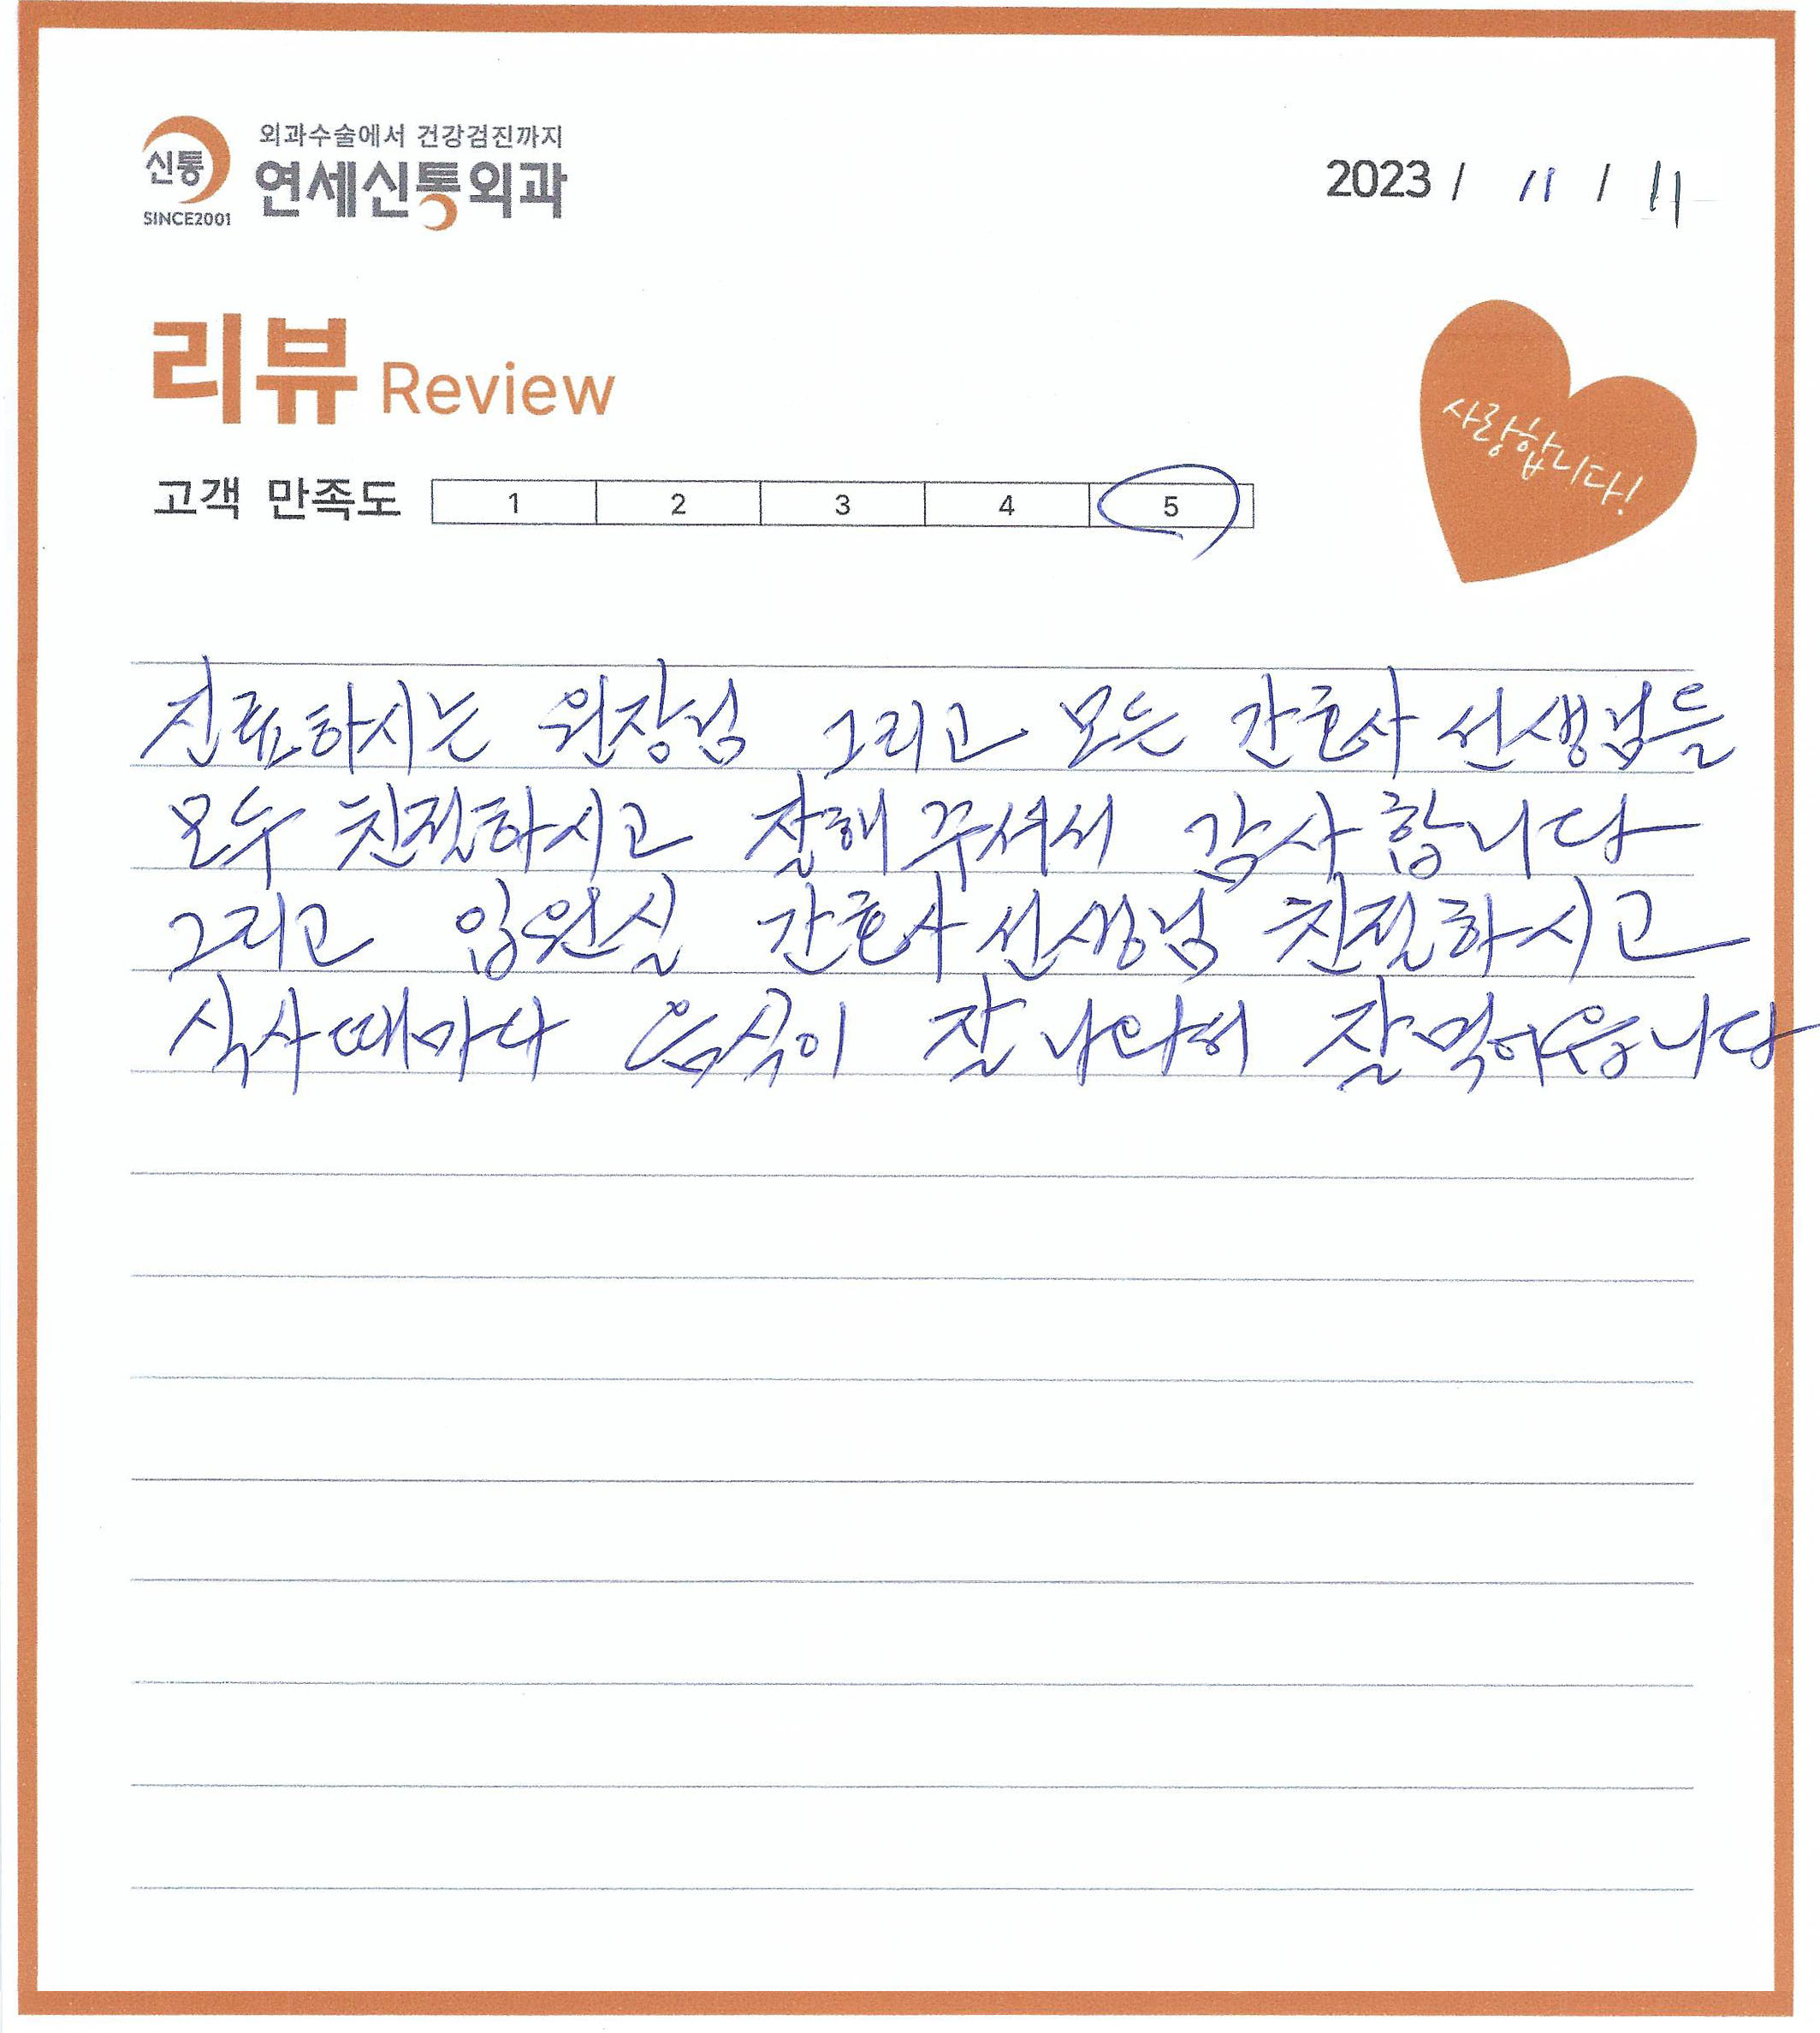 외과수술에서 건강검진까지
신통
연세신통외과
SINCE2001
2023 / 11 / 11
리뷰 Review
사랑합니다!
고객 만족도 1 2 3 4 5
진료하시는 원장님 그리고 모든 간호사 선생님들
모두 친절하시고 잘해 주셔서 감사합니다
그리고 입원실 간호사 선생님 친절하시고
식사때마다 음식이 잘 나와서 잘 먹어습니다